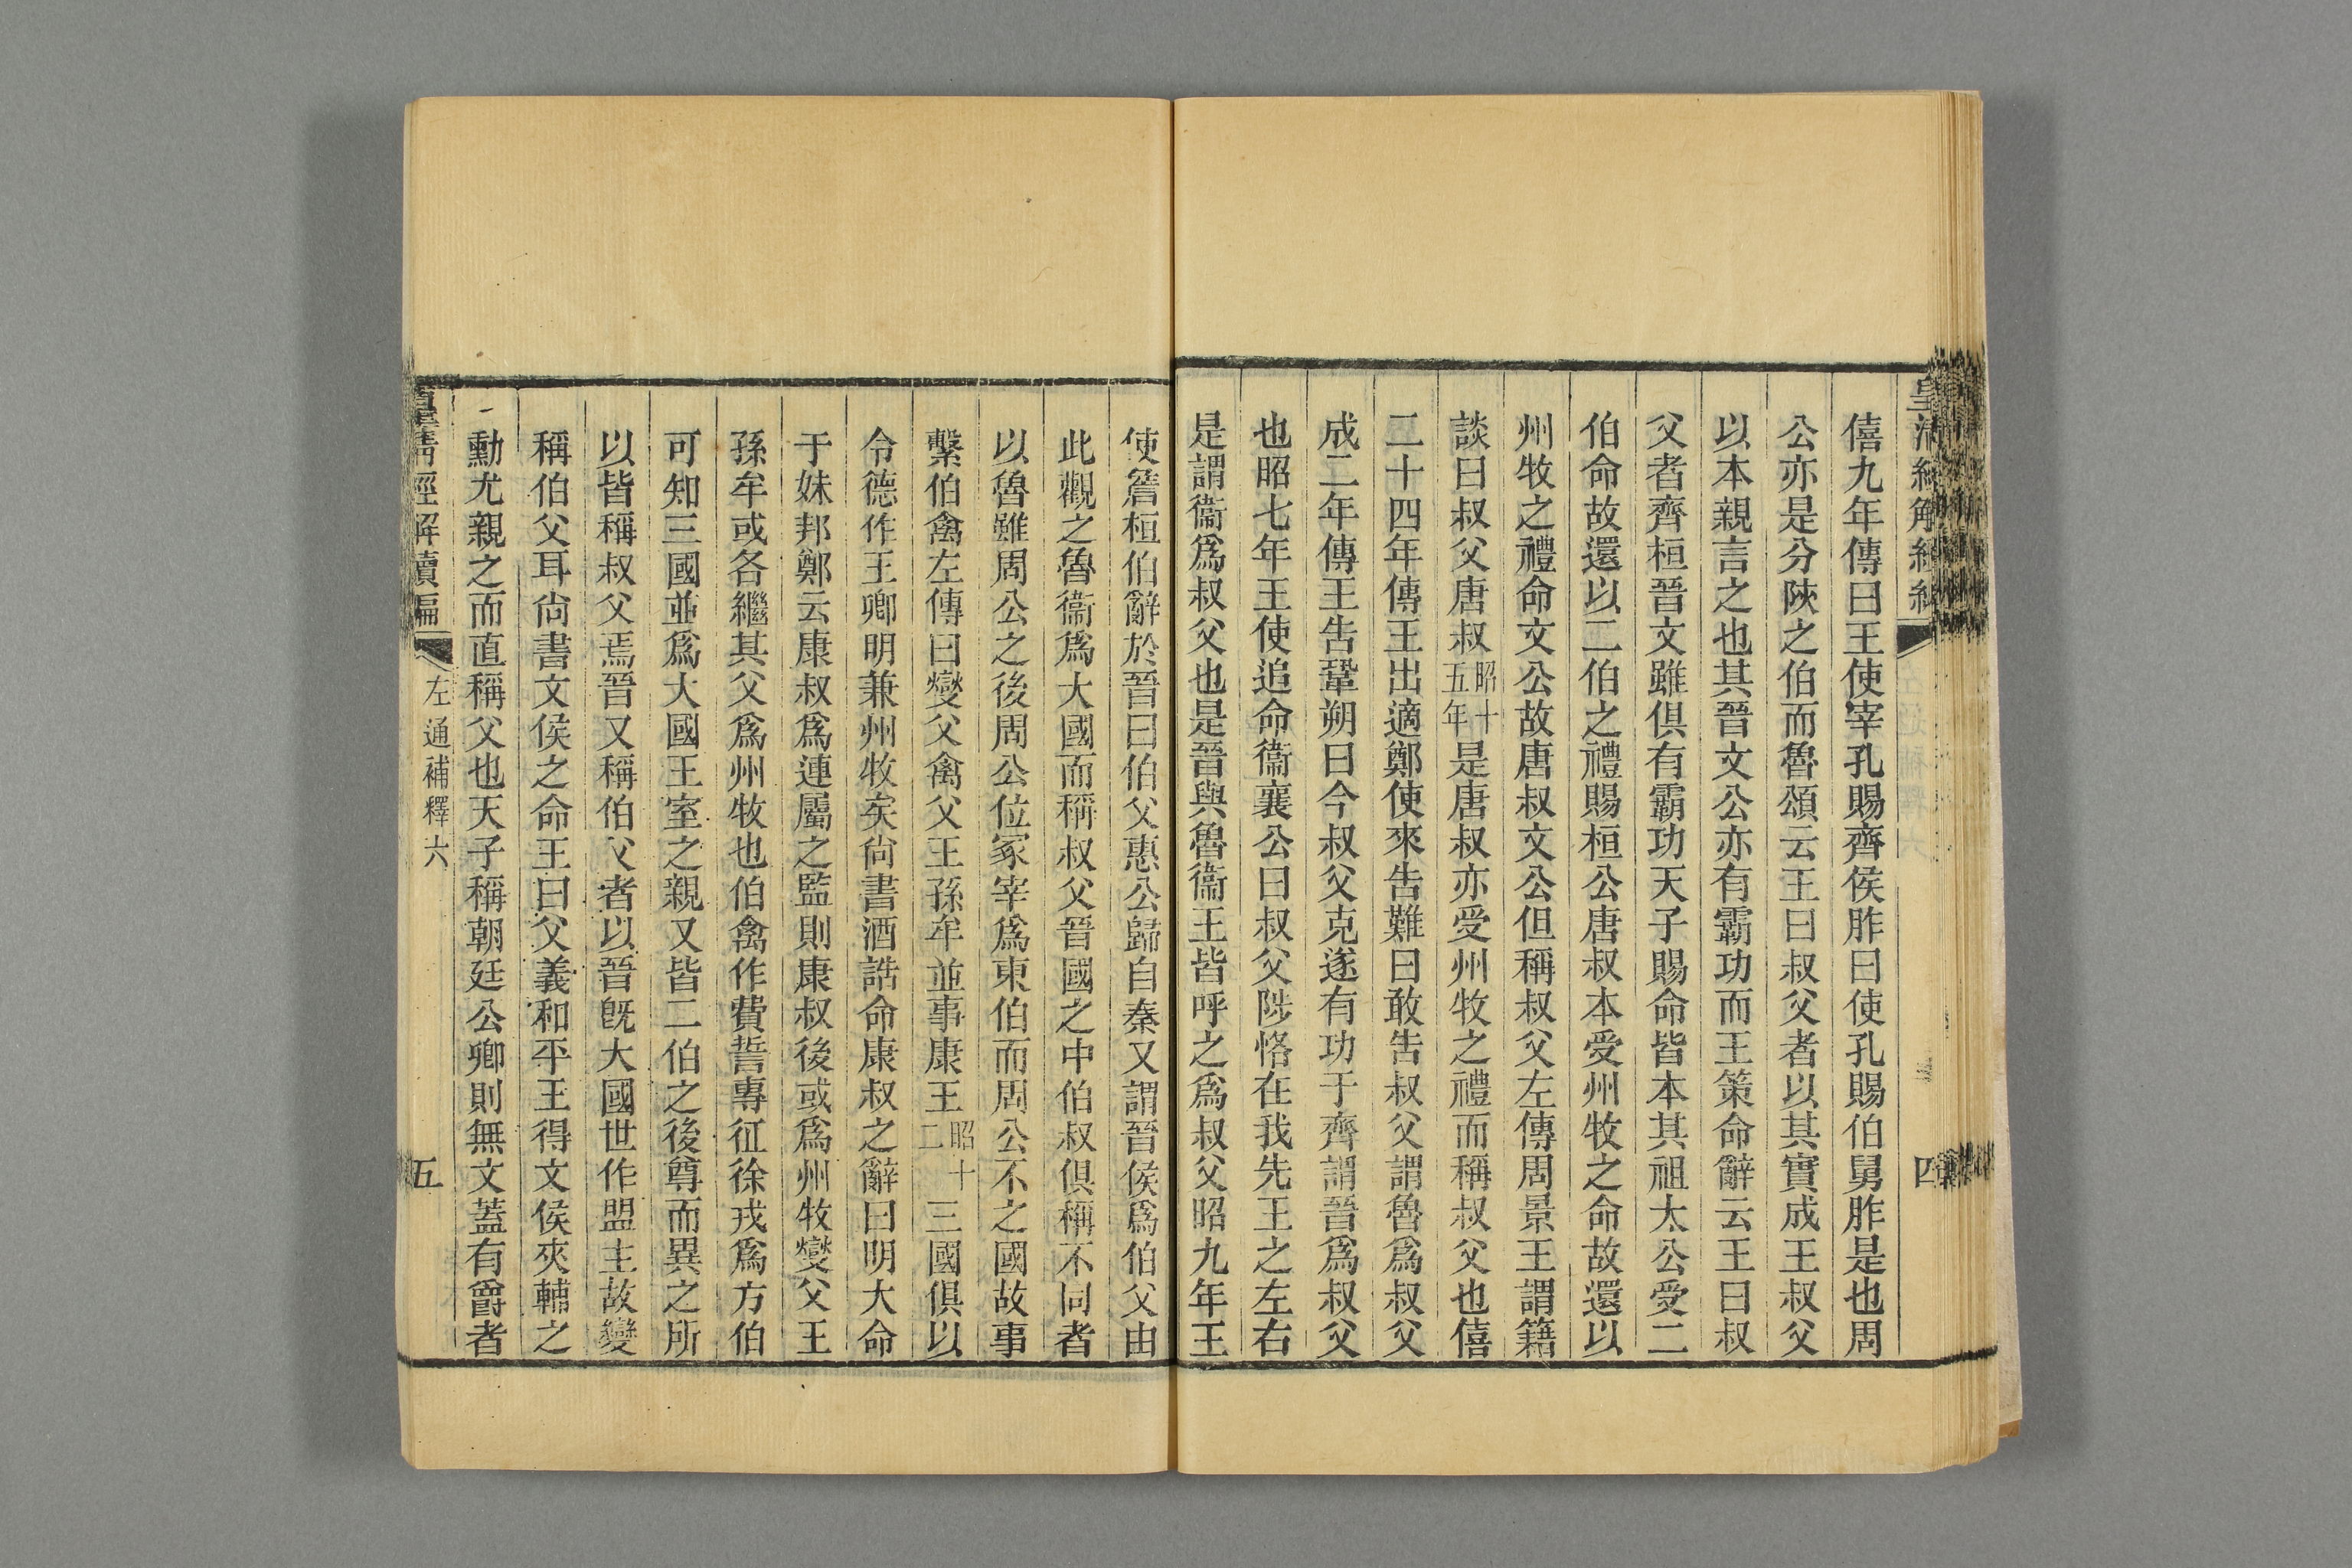 僖九年傳曰王使宰孔賜齊侯胙曰使孔賜伯舅胙是也周
公亦是分陜之伯而魯頌云王曰叔父者以其實成王叔父
以本親言之也其晉文公亦有霸功而王策命辭云王曰叔
父者齊桓晉文雖俱有霸功天子賜命皆本其祖太公受二
伯命故還以二伯之禮賜桓公唐叔本受州牧之命故還以
州牧之禮命文公故唐叔文公但稱叔父左傳周景王謂籍
談曰叔父唐叔昭十五年是唐叔亦受州牧之禮而稱叔父也僖
二十四年傳王出適鄭使來告難曰敢告叔父謂魯爲叔父
成二年傳王告鞏朔曰今叔父克遂有功于齊謂晉爲叔父
也昭七年王使追命衞襄公曰叔父陟恪在我先王之左右
是謂衞爲叔父也是晉與魯衞王皆呼之爲叔父昭九年王
使詹桓伯辭於晉曰伯父惠公歸自秦又謂晉侯爲伯父由
此觀之魯衞爲大國而稱叔父晉國之中伯叔俱稱不同者
以魯雖周公之後周公位冢宰爲東伯而周公不之國故事
繫伯禽左傳曰燮父禽父王孫牟並事康王昭十二三國俱以
令德作王卿明兼州牧矣尙書酒誥命康叔之辭曰明大命
于妹邦鄭云康叔爲連屬之監則康叔後或爲州牧燮父王
孫牟或各繼其父爲州牧也伯禽作費誓專征徐戎爲方伯
可知三國並爲大國王室之親又皆二伯之後尊而異之所
以皆稱叔父焉晉又稱伯父者以晉旣大國世作盟主故變
稱伯父耳尙書文侯之命王曰父義和平王得文侯夾輔之
勳尤親之而直稱父也天子稱朝廷公卿則無文蓋有爵者
皇清經解續編
左通補釋六
五
四